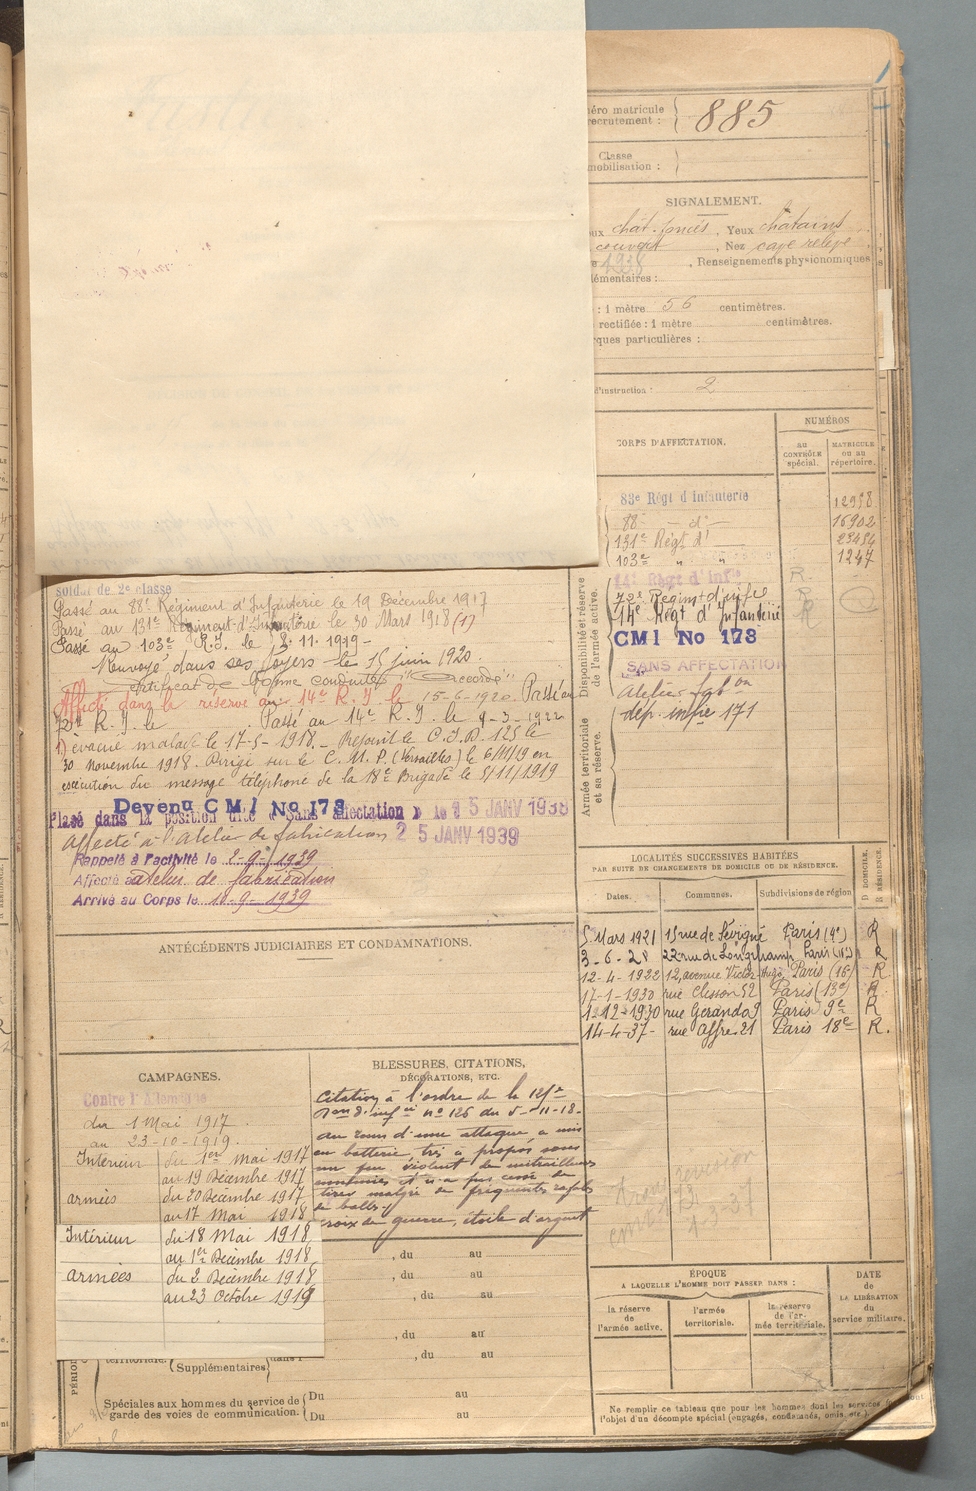 885
Classe
SIGNALEMENT.
chât. foncés, Yeux châtains
couvert, Nez cave relevé
1938, Renseignements physionomiques
: 1 mètre 56 centimètres.
rectifiée : 1 mètre centimètres.
d'instruction : 2
CORPS D'AFFECTATION.
NUMÉROS
au CONTRÔLE spécial.
MATRICULE ou au répertoire.
83e Régt d'Infanterie 12958
88e — d° — 16902
131e Régt d° 23454
103e " " 1247
14e Régt d'Infie R
72e Regimt d'infie R
14e Régt d'Infanterie R
CM1 No 173
SANS AFFECTATION
Atelier fabon
dép. infie 171
Disponibilité et réserve de l'armée active.
Armée territoriale et sa réserve.
soldat de 2e classe
Passé au 88e Régiment d'Infanterie le 19 Décembre 1917
Passé au 131e Régiment d'Infanterie le 30 Mars 1918 (1)
Passé au 103e R.I. le 11-1919-
Renvoyé dans ses foyers le 15 juin 1920.
Certificat de bonne conduite "Accordé"
Affecté dans la réserve au 14e R. I. le 15-6-1920. Passé au
72e R. I. le Passé au 14e R. I. le 9-3-1922
1) évacué malade le 17-5-1918. — Rejoint le C.I.D. 125 le
30 novembre 1918. Dirigé sur le C. M. P. (Versailles) le 6/11/19 en
exécution du message téléphoné de la 18e Brigade le 5/11/1919
Devenu CM1 No 173
Placé dans la position dite « Sans affectation » le 5 JANV 1938
Affecté à l'Atelier de fabrication 25 JANV 1939
Rappelé à l'activité le 2-9-1939
Affecté atelier de fabrication
Arrivé au Corps le 10-9-1939
ANTÉCÉDENTS JUDICIAIRES ET CONDAMNATIONS.
LOCALITÉS SUCCESSIVES HABITÉES
PAR SUITE DE CHANGEMENTS DE DOMICILE OU DE RÉSIDENCE.
Dates. Communes. Subdivisions de région D DOMICILE. R RÉSIDENCE.
5 Mars 1921 15 rue de Sévigné Paris (4e) R
3-6-21 22 rue de Longchamp Paris (16e) R
12-4-1922 12, avenue Victor-Hugo Paris (16e) R
17-1-1930 rue Clisson 52 Paris (13e) R
1-12-1930 rue Gérando 9 Paris 9e R
14-4-37- rue Affre 21 Paris 18e R.
CAMPAGNES.
Contre l'Allemagne
du 1 Mai 1917
au 23-10-1919.
Intérieur du 1er Mai 1917
au 19 Décembre 1917
armées du 20 Décembre 1917
au 17 Mai 1918
Intérieur du 18 Mai 1918
au 1er Décembre 1918
armées du 2 Décembre 1918
au 23 Octobre 1919
BLESSURES, CITATIONS,
DÉCORATIONS, ETC.
Citation à l'ordre de la 125e
Don d'infrie n° 126 du 5-11-18-
au cours d'une attaque a mis
en batterie, très à propos sous
un feu violent de mitrailleuses
ennemies et n'a pas cessé de
tirer malgré de fréquentes rafales
de balles
croix de guerre, étoile d'argent
, du au
, du au
, du au
, du au
, du au
territoriale. Supplémentaires dans l'
Spéciales aux hommes du service de garde des voies de communication. Du au
Du au
4-3-37
ÉPOQUE
A LAQUELLE L'HOMME DOIT PASSER DANS :
la réserve de l'armée active.
l'armée territoriale.
la réserve de l'armée territoriale.
DATE de LA LIBÉRATION du service militaire.
Ne remplir ce tableau que pour les hommes dont les services font
l'objet d'un décompte spécial (engagés, condamnés, omis, etc.).